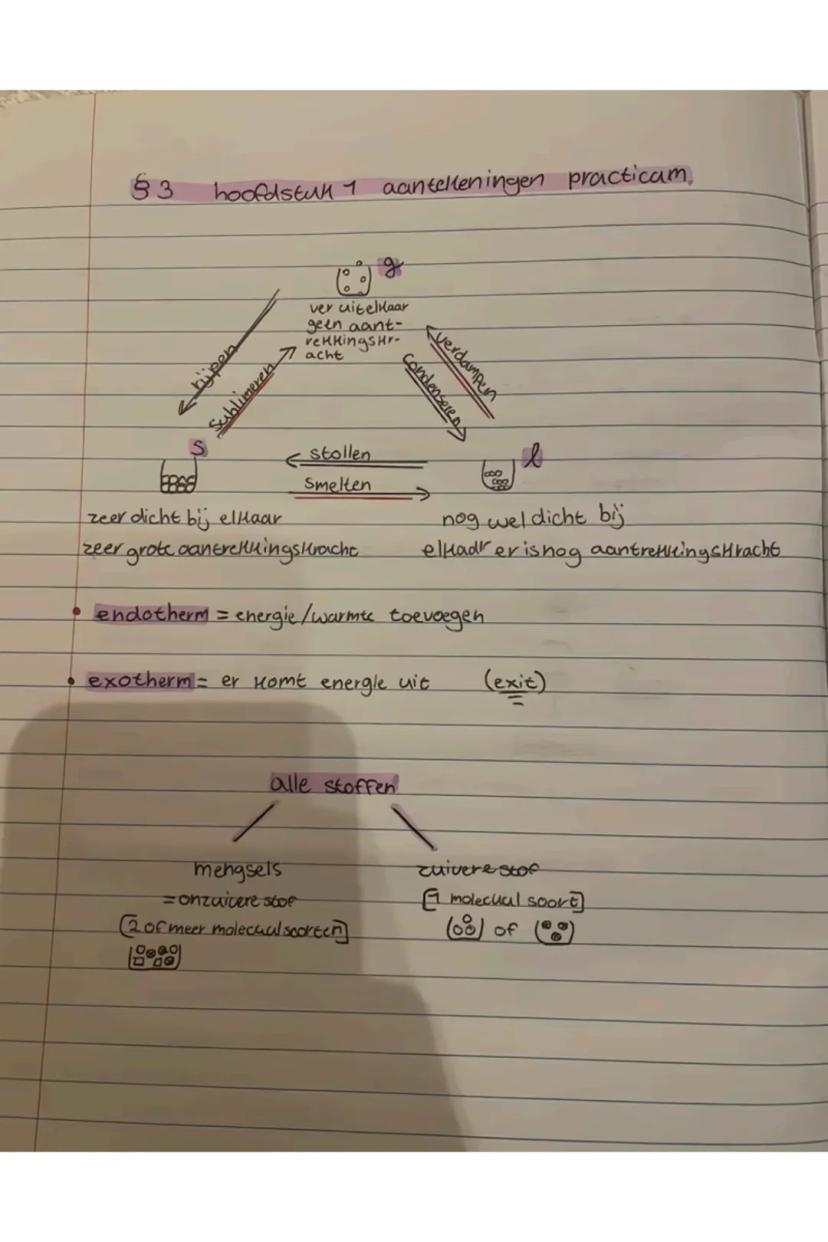 §3 hoofdstuk 1 aantekeningen practicum.
g
ver uit elkaar
geen aant-
rekkingskr-
acht
rijpen
sublimeren
condenseren
verdampen
s
stollen
l
smelten
zeer dicht bij elkaar
nog wel dicht bij
zeer grote aantrekkingskracht
elkaar er is nog aantrekkingskracht
• endotherm = energie/warmte toevoegen
• exotherm = er komt energie uit (exit)
alle stoffen
mengsels
zuivere stof
= onzuivere stof
[1 molecuul soort]
[2 of meer molecuulsoorten]
of